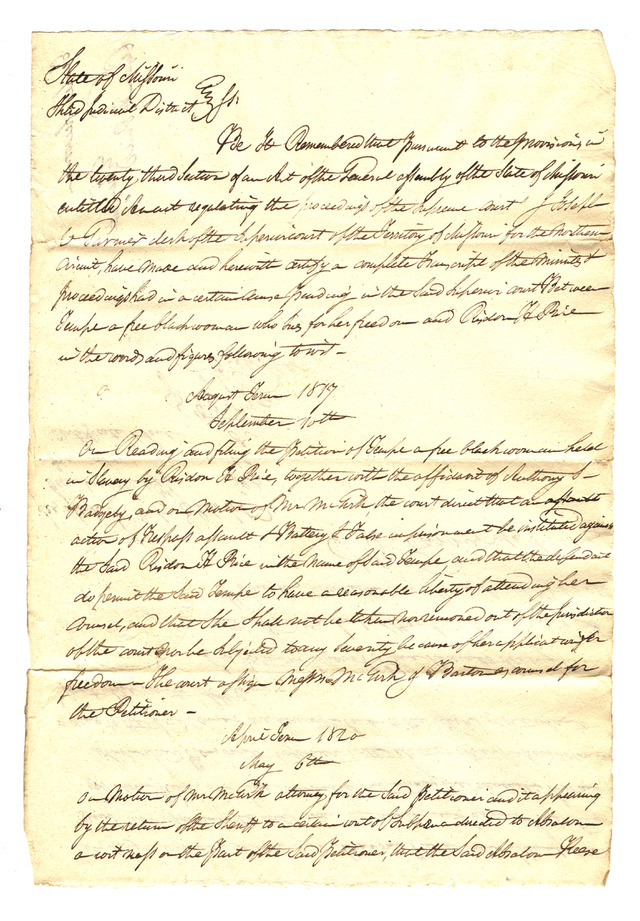 State of Missouri
Third Judicial District } Ss.
Be It Remembered that pursuant to the provisions in
the twenty third Section of an Act of the General assembly of the State of Missouri
entitled An act regulating the proceedings of the Supreme court I
clerk of the Superior court of the Territory of Missouri for the Northern
Circuit, have made and herewith certify a complete transcript of the minutes &
proceedings had in a certain cause pending in the Said Superior court Between
Tempe a free black woman who sues for her freedom and Risdon H Price
in the words and figures following to wit —
August Term 1817
September 10th
On Reading and filing the petition of Tempe a free black woman held
in Slavery by Risdon H Price, together with the affidavit of Anthony S
Badgely, and on Motion of Mr McGirk the court direct that an
action of Trespass assault & Battery & False imprisonment be instituted against
the Said Risdon H Price in the name of said Tempe, and that the defendant
do permit the Said Tempe to have a reasonable liberty of attending her
counsel, and that She Shall not be taken nor removed out of the jurisdiction
of the court nor be Subjected to any Severity because of her application for
freedom — The court assign Messrs McGirk & Barton as counsel for
the Petitioner —
April Term 1820
May 6th
On Motion of Mr McGirk attorney for the Said Petitioner and it appearing
by the return of the Sheriff to a certain writ of directed to Absalom
a witness on the part of the Said Petitioner, that the Said Absalom